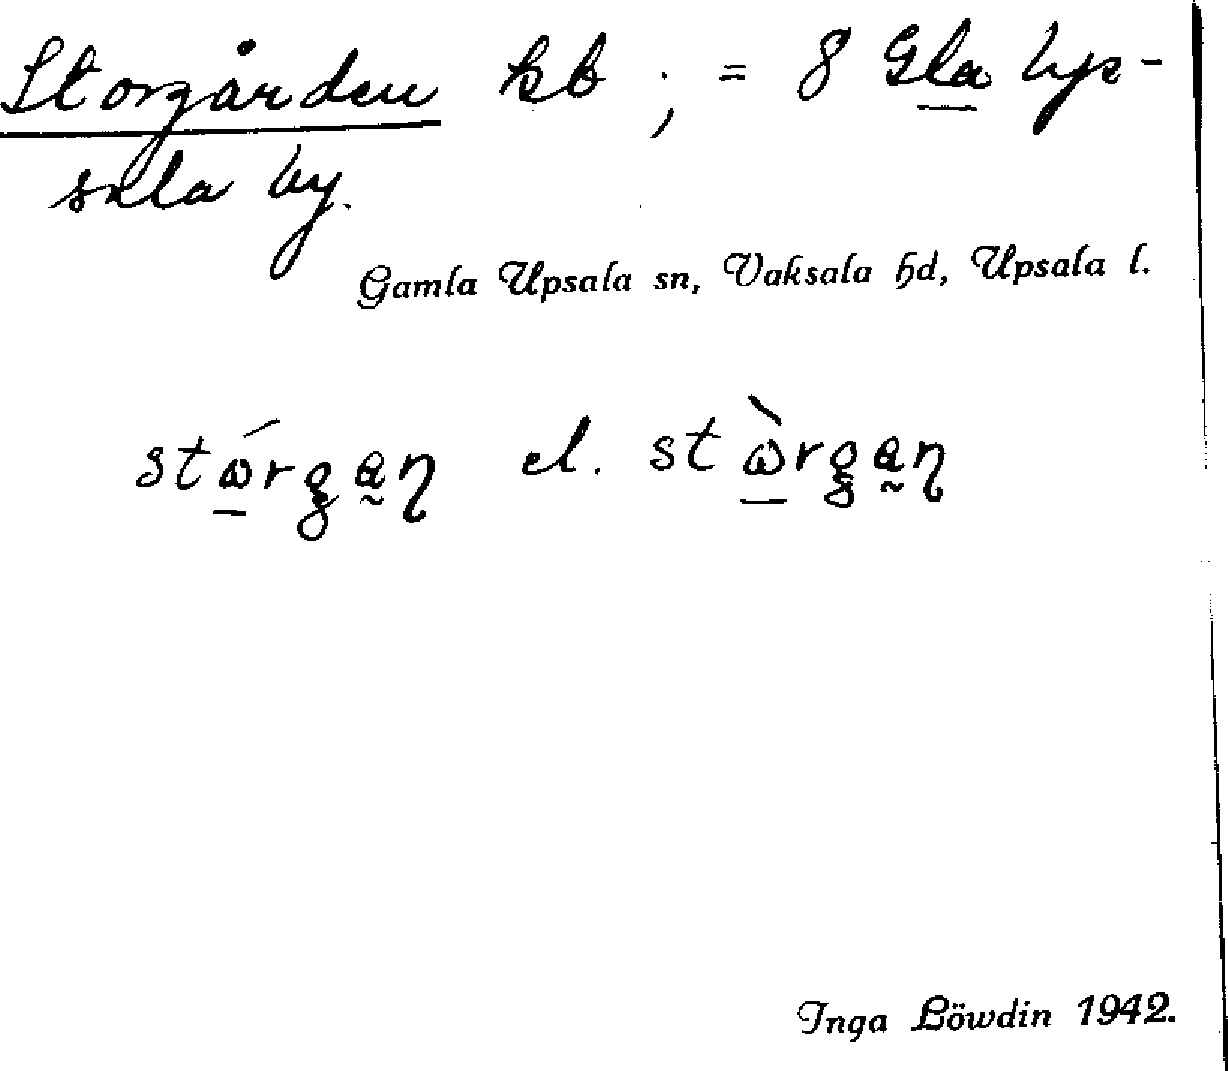 Storgården hb ; = 8 Gla Up-
sala by.
Gamla Upsala sn, Vaksala hd, Upsala l.
stώrga̰η el. stὼrga̰η
Inga Löwdin 1942.